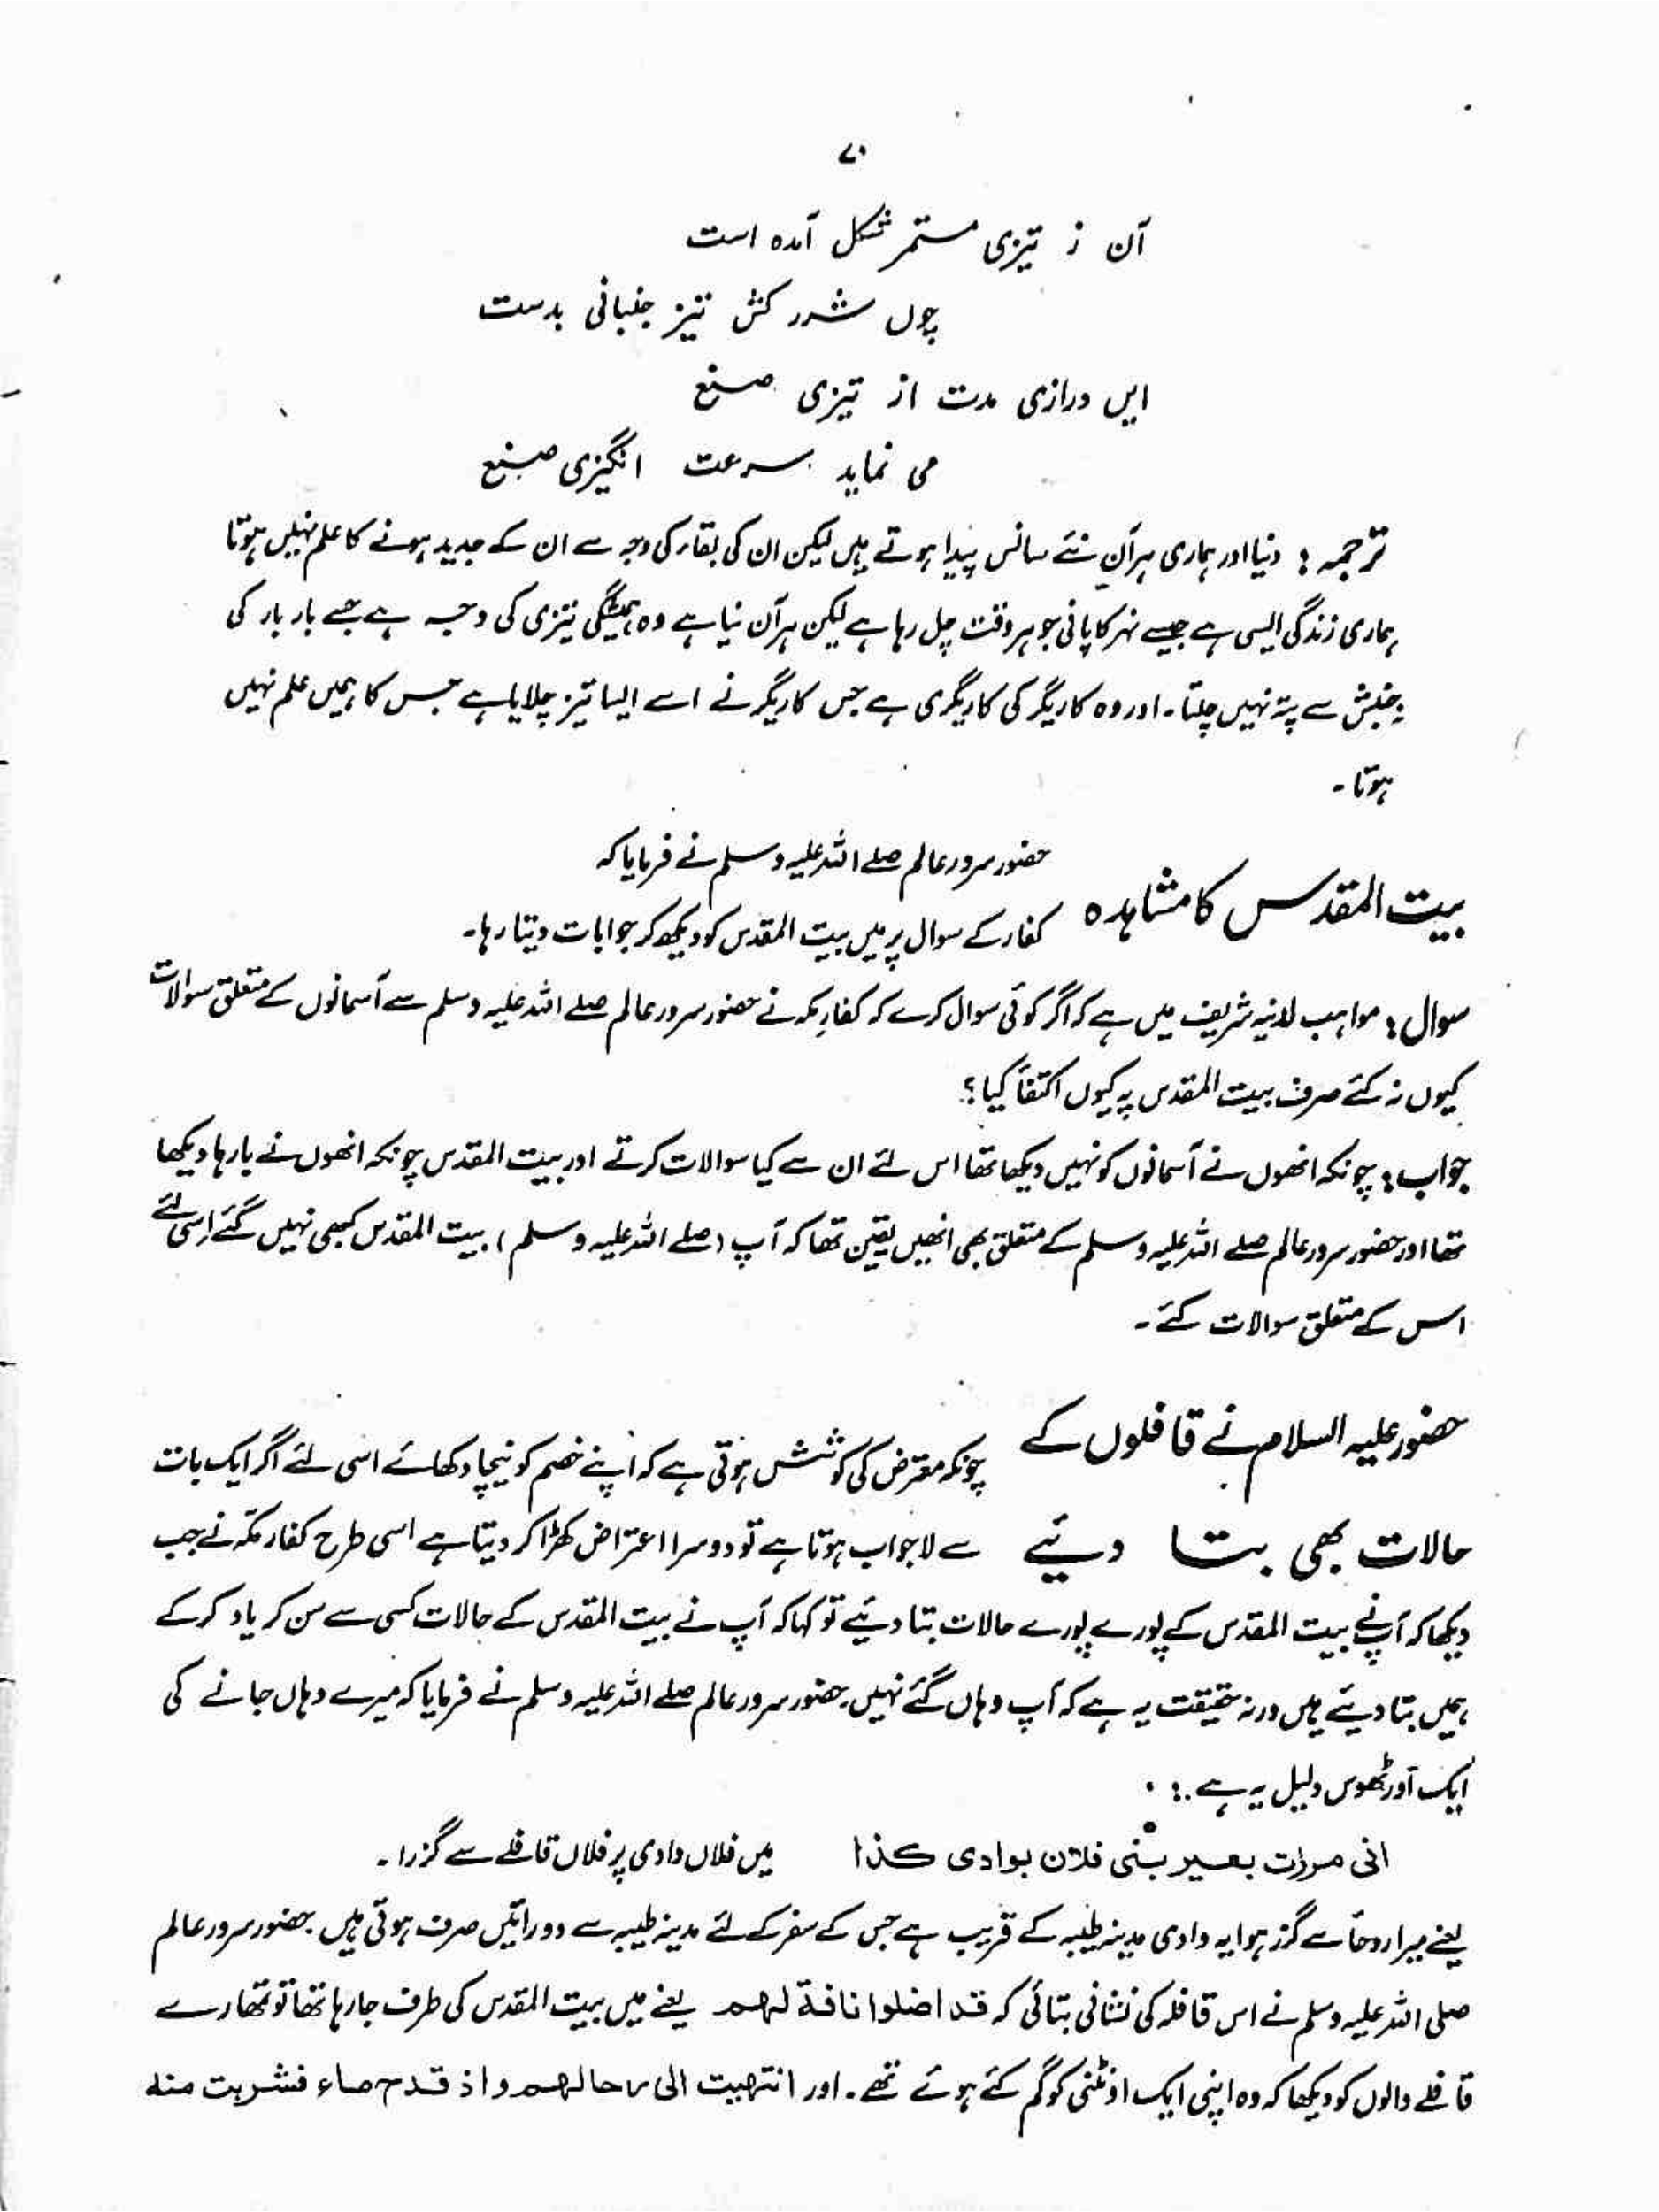 ۷۰
آن ز تیزی مستمر شکل آمده است
چوں شرر کش تیز جنبانی بدست
ایں درازی مدت از تیزی صنع
می نماید سرعت انگیزی صنع
ترجمہ : دنیا اور ہماری ہر آن نئے سانس پیدا ہوتے ہیں لیکن ان کی بقاء کی وجہ سے ان کے جدید ہونے کا علم نہیں ہوتا
ہماری زندگی ایسی ہے جیسے نہر کا پانی جو ہر وقت چل رہا ہے لیکن ہر آن نیا ہے وہ ہمیشگی تیزی کی وجہ ہے جسے بار بار کی
جنبش سے پتہ نہیں چلتا۔ اور وہ کاریگر کی کاریگری ہے جس کاریگر نے اسے ایسا تیز چلایا ہے جس کا ہمیں علم نہیں
ہوتا ۔
بیت المقدس کا مشاہدہ حضور سرور عالم صلے اللہ علیہ وسلم نے فرمایا کہ
کفار کے سوال پر میں بیت المقدس کو دیکھ کر جوابات دیتا رہا۔
سوال : مواہب لدنیہ شریف میں ہے کہ اگر کوئی سوال کرے کہ کفار مکہ نے حضور سرور عالم صلے اللہ علیہ وسلم سے آسمانوں کے متعلق سوالات
کیوں نہ کئے صرف بیت المقدس پہ کیوں اکتفأ کیا ؟
جواب : چونکہ انھوں نے آسمانوں کو نہیں دیکھا تھا اس لئے ان سے کیا سوالات کرتے اور بیت المقدس چونکہ انھوں نے بارہا دیکھا
تھا اور حضور سرور عالم صلے اللہ علیہ وسلم کے متعلق بھی انھیں یقین تھا کہ آپ (صلے اللہ علیہ وسلم) بیت المقدس کبھی نہیں گئے اسی لئے
اس کے متعلق سوالات کئے ۔
حضور علیہ السلام نے قافلوں کے چونکہ معترض کی کوشش ہوتی ہے کہ اپنے خصم کو نیچا دکھائے اسی لئے اگر ایک بات
حالات بھی بتا دئیے سے لاجواب ہوتا ہے تو دوسرا اعتراض کھڑا کر دیتا ہے اسی طرح کفار مکّہ نے جب
دیکھا کہ آپ نے بیت المقدس کے پورے پورے حالات بتا دئیے تو کہا کہ آپ نے بیت المقدس کے حالات کسی سے سن کر یاد کر کے
ہمیں بتا دیئے ہیں ورنہ حقیقت یہ ہے کہ آپ وہاں گئے نہیں۔ حضور سرور عالم صلے اللہ علیہ وسلم نے فرمایا کہ میرے وہاں جانے کی
ایک اور ٹھوس دلیل یہ ہے :
انی مررت بعیر بنی فلان بوادی کذا میں فلاں وادی پر فلاں قافلے سے گزرا ۔
یعنے میرا روحأ سے گزر ہوا یہ وادی مدینہ طیبہ کے قریب ہے جس کے سفر کے لئے مدینہ طیبہ سے دو راتیں صرف ہوتی ہیں۔ حضور سرور عالم
صلی اللہ علیہ وسلم نے اس قافلہ کی نشانی بتائی کہ قد اضلوا ناقة لهم یعنے میں بیت المقدس کی طرف جا رہا تھا تو تمھارے
قافلے والوں کو دیکھا کہ وہ اپنی ایک اونٹنی کو گم کئے ہوئے تھے ۔ اور انتهیت الی رحالهم واذ قدح ماء فشربت منه